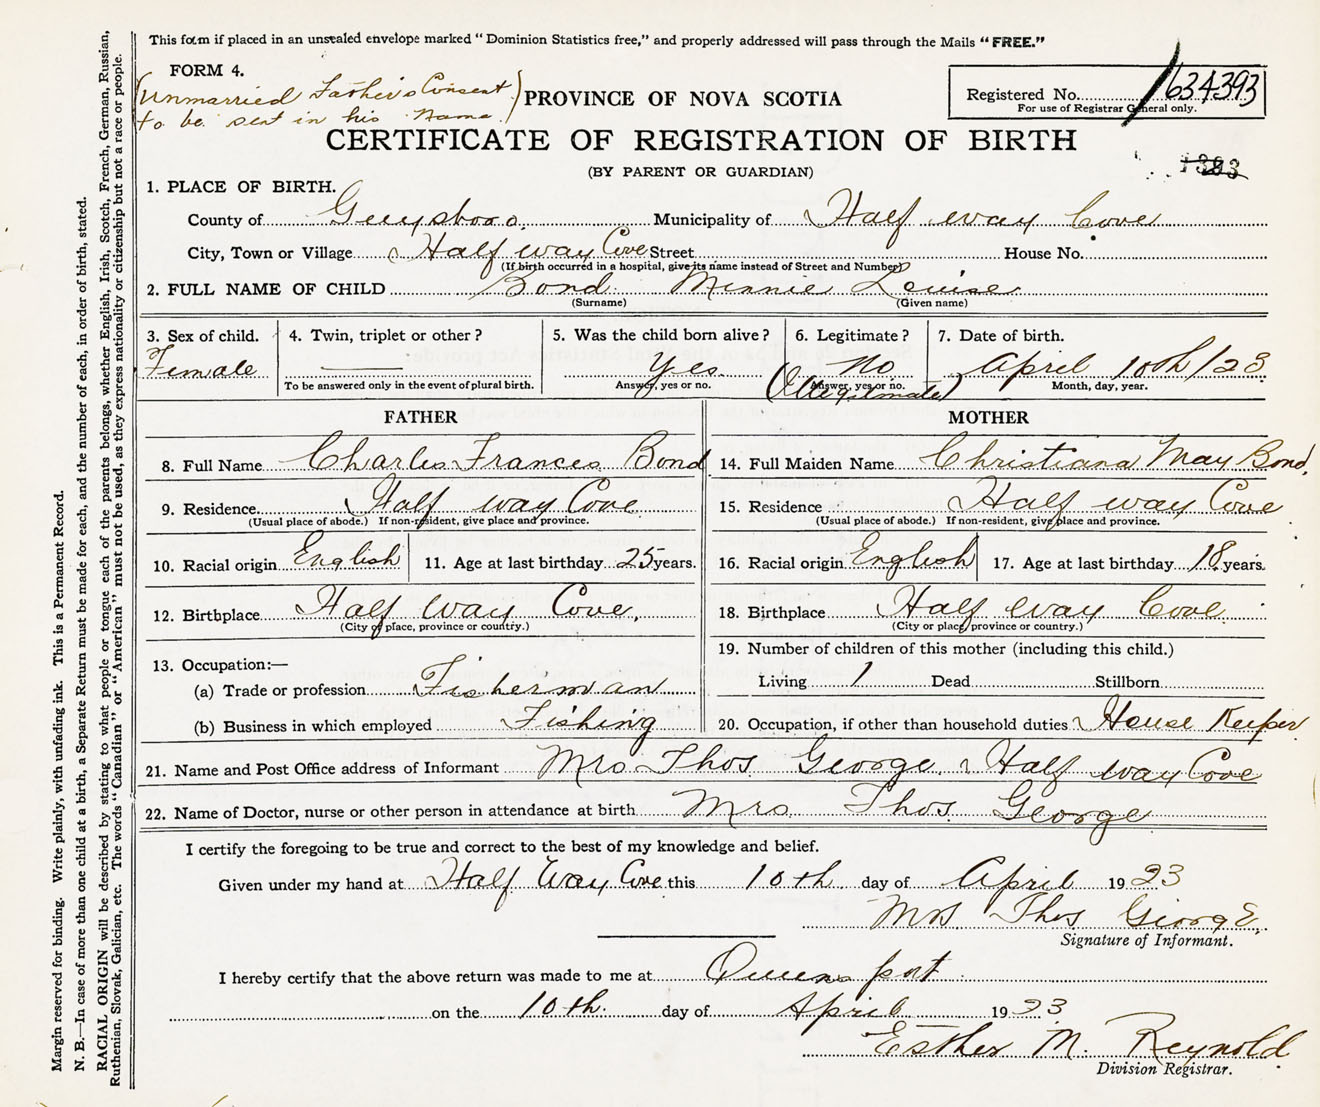 This form if placed in an unsealed envelope marked "Dominion Statistics free," and properly addressed will pass through the Mails "FREE."
FORM 4.
(Unmarried Father's Consent
to be sent in his Name.)
PROVINCE OF NOVA SCOTIA
Registered No. 634393
For use of Registrar General only.
CERTIFICATE OF REGISTRATION OF BIRTH
(BY PARENT OR GUARDIAN)
1. PLACE OF BIRTH.
County of Guysboro. Municipality of Half way Cove
City, Town or Village Half way Cove Street House No.
(If birth occurred in a hospital, give its name instead of Street and Number)
2. FULL NAME OF CHILD Bond Minnie Louise
(Surname) (Given name)
3. Sex of child. 4. Twin, triplet or other? 5. Was the child born alive? 6. Legitimate? 7. Date of birth.
Female — Yes No April 10th/23
To be answered only in the event of plural birth. Answer, yes or no. Answer, yes or no. Month, day, year.
(Illegitimate)
FATHER MOTHER
8. Full Name Charles Frances Bond 14. Full Maiden Name Christiana May Bond.
9. Residence Half way Cove 15. Residence Half way Cove
(Usual place of abode.) If non-resident, give place and province. (Usual place of abode.) If non-resident, give place and province.
10. Racial origin English 11. Age at last birthday 25 years. 16. Racial origin English 17. Age at last birthday 18 years.
12. Birthplace Half Way Cove. 18. Birthplace Half Way Cove
(City or place, province or country.) (City or place, province or country.)
13. Occupation:— 19. Number of children of this mother (including this child.)
(a) Trade or profession Fisherman Living 1 Dead Stillborn
(b) Business in which employed Fishing 20. Occupation, if other than household duties House Keeper
21. Name and Post Office address of Informant Mrs Thos George. Half way Cove
22. Name of Doctor, nurse or other person in attendance at birth Mrs. Thos. George
I certify the foregoing to be true and correct to the best of my knowledge and belief.
Given under my hand at Half Way Cove this 10th day of April 1923
Mrs Thos George.
Signature of Informant.
I hereby certify that the above return was made to me at Queensport
on the 10th. day of April 1923
Esther M. Reynolds
Division Registrar.
Margin reserved for binding. Write plainly, with unfading ink. This is a Permanent Record.
N. B.—In case of more than one child at a birth, a Separate Return must be made for each, and the number of each, in order of birth, stated.
RACIAL ORIGIN will be described by stating to what people or tongue each of the parents belongs, whether English, Irish, Scotch, French, German, Russian,
Ruthenian, Slovak, Galician, etc. The words "Canadian" or "American" must not be used, as they express nationality or citizenship but not a race or people.